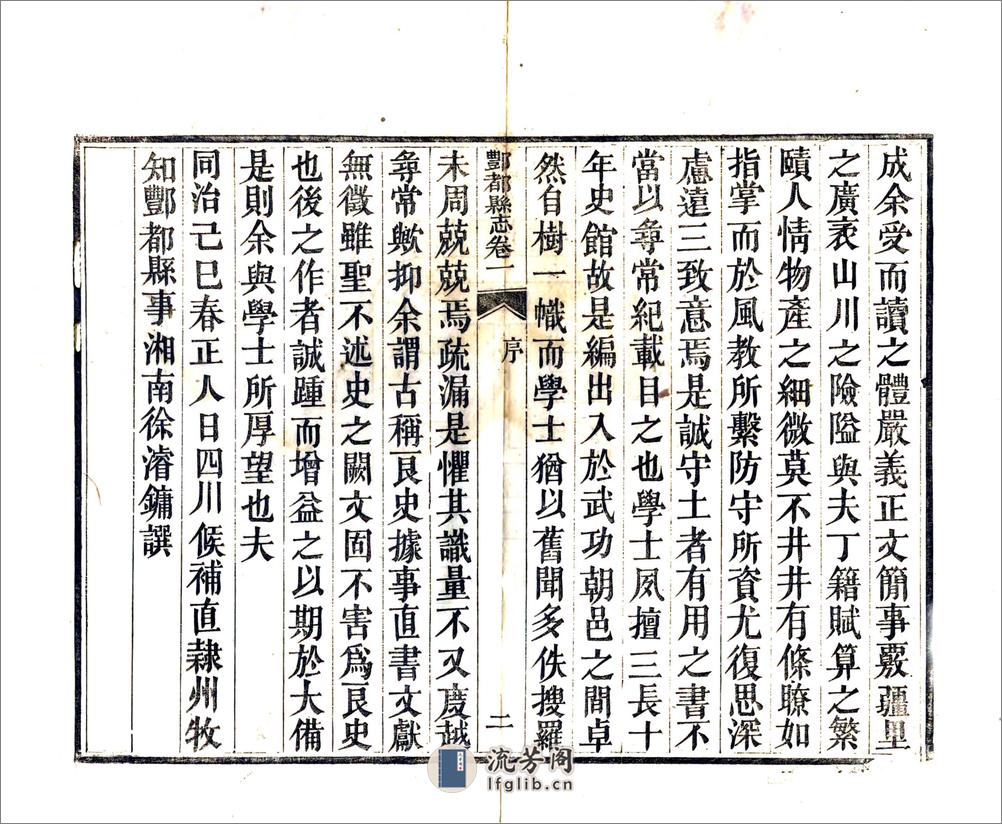 成余受而讀之體嚴義正文簡事覈疆里
之廣袤山川之險隘與夫丁籍賦算之繁
賾人情物產之細微莫不井井有條瞭如
指掌而於風教所繫防守所資尤復思深
慮遠三致意焉是誠守土者有用之書不
當以尋常紀載目之也學士夙擅三長十
年史館故是編出入於武功朝邑之間卓
然自樹一幟而學士猶以舊聞多佚搜羅
酆都縣志卷一
序
二
未周兢兢焉疏漏是懼其識量不又度越
尋常歟抑余謂古稱良史據事直書文獻
無徵雖聖不述史之闕文固不害爲良史
也後之作者誠踵而增益之以期於大備
是則余與學士所厚望也夫
同治己巳春正人日四川候補直隸州牧
知酆都縣事湘南徐濬鏞譔
流芳阁
lfglib.cn